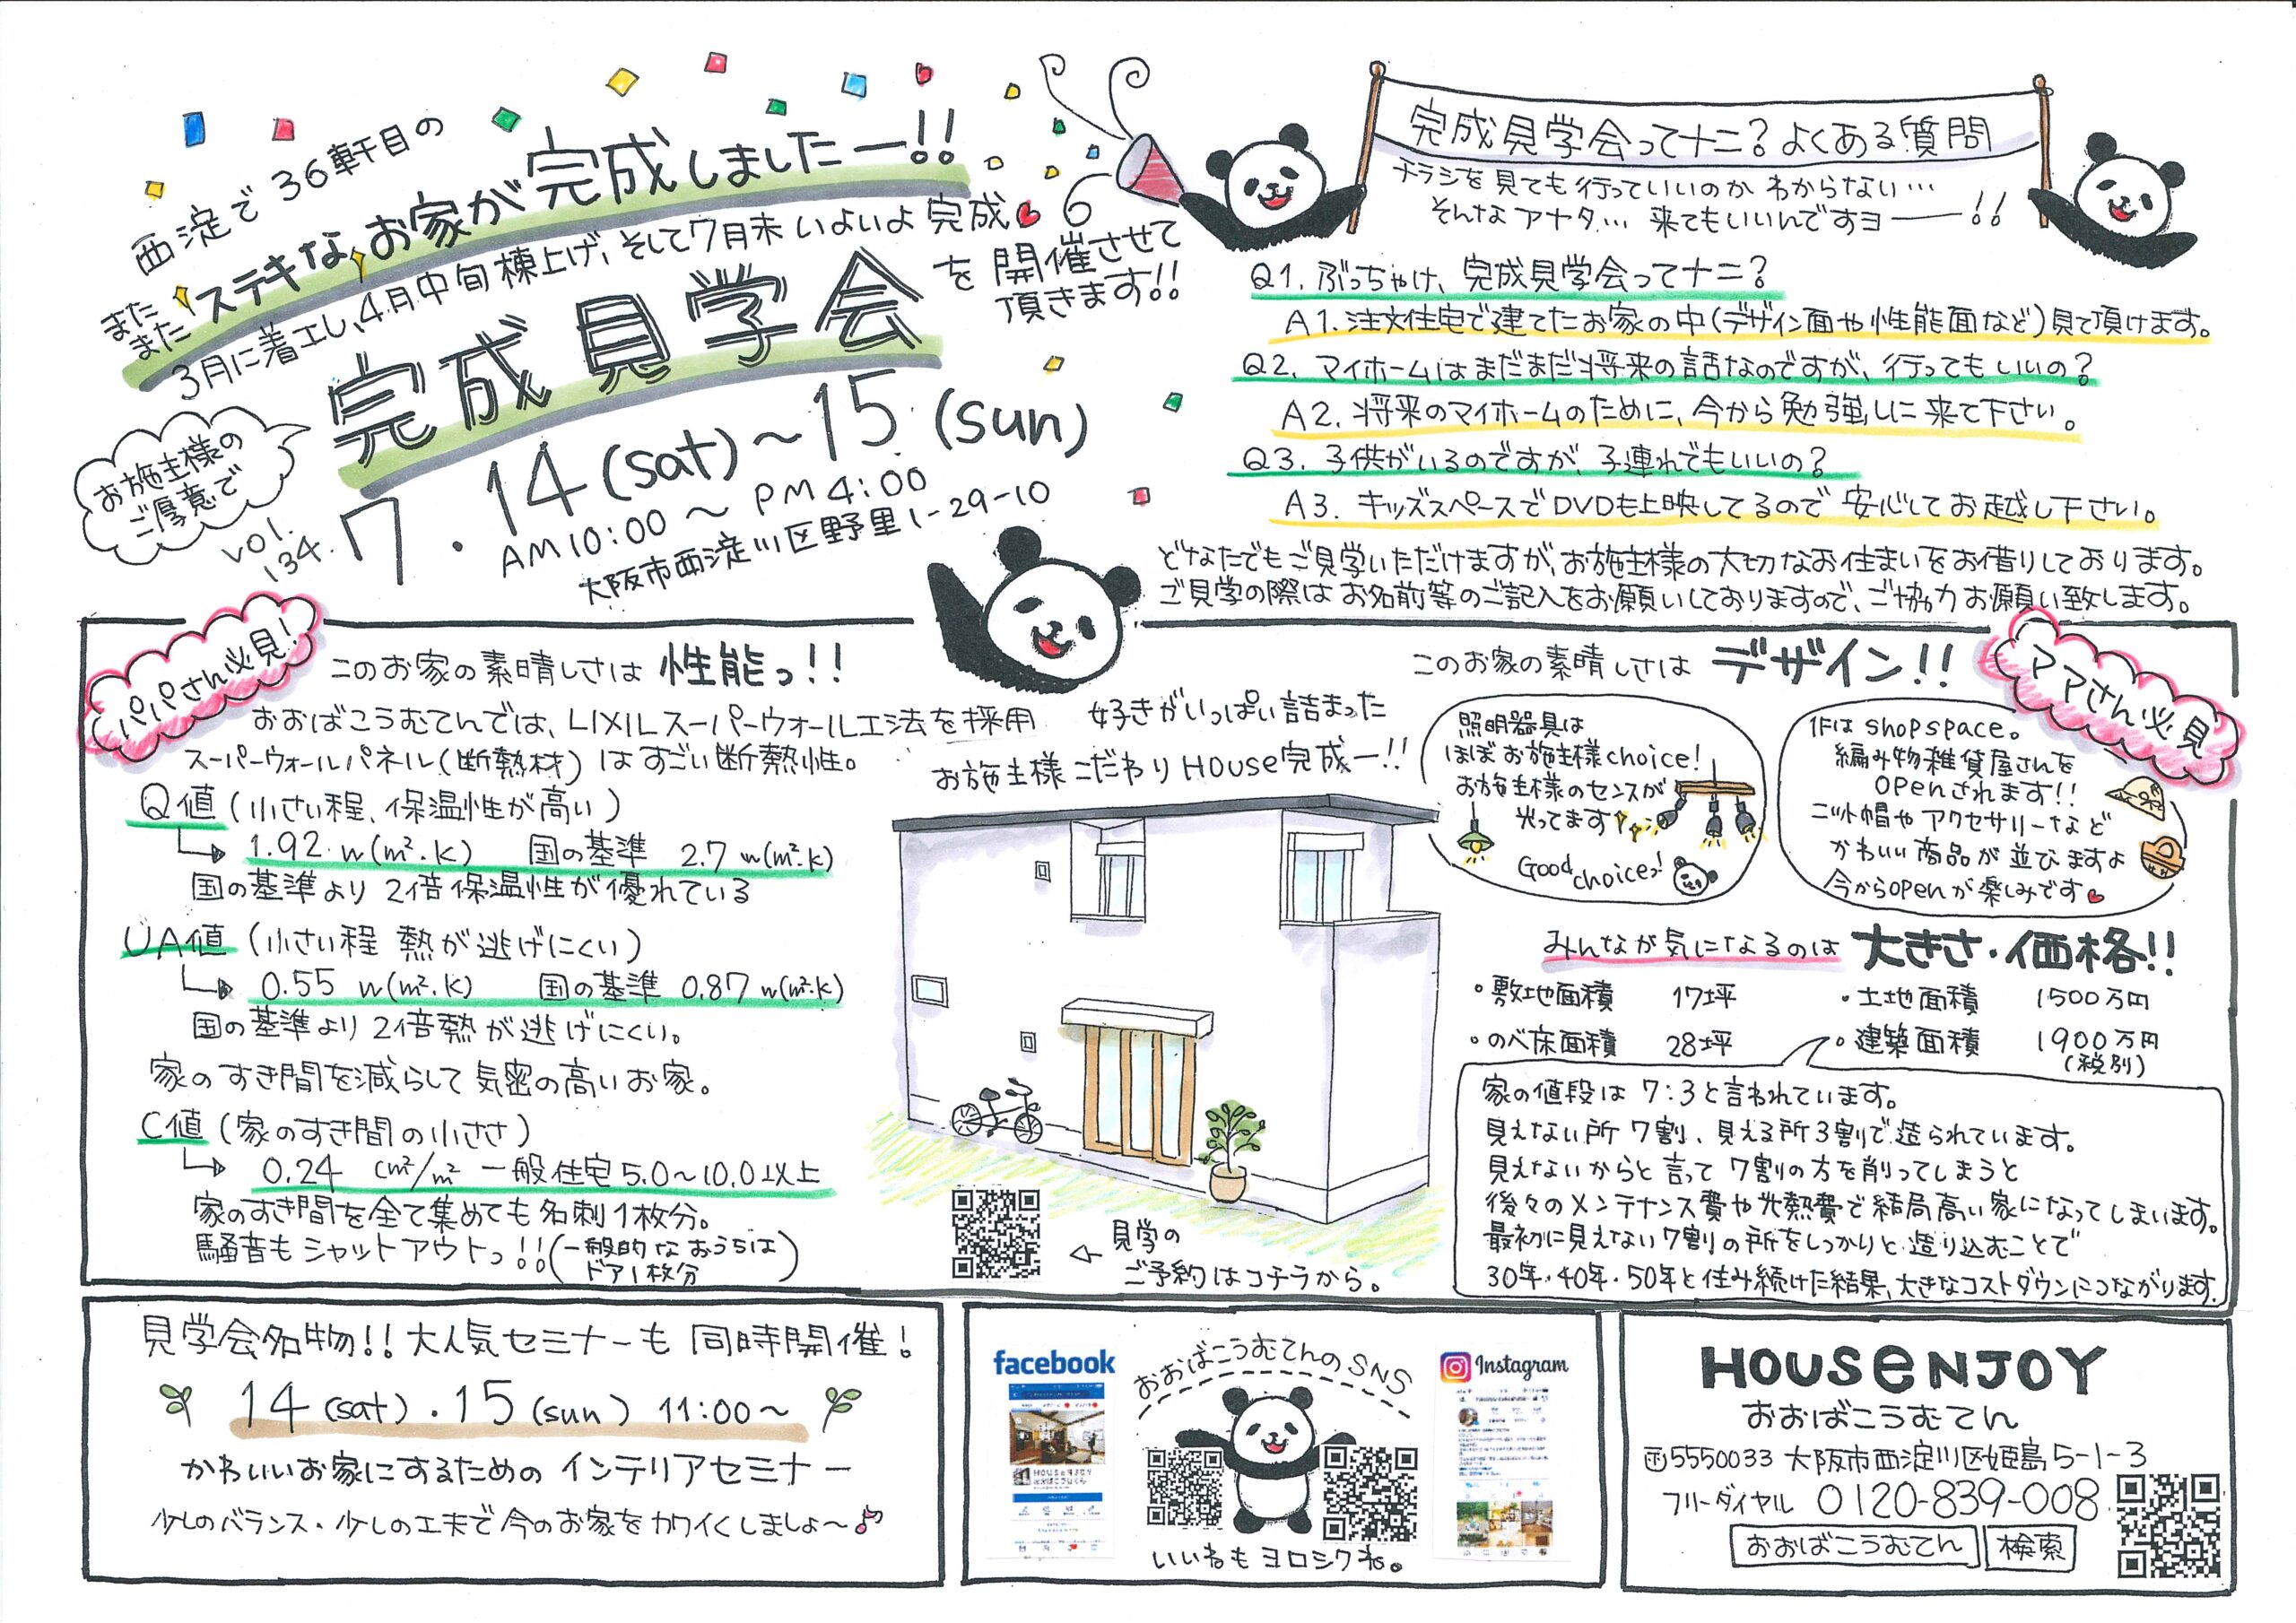 西淀で36軒目の
またまたステキなお家が完成しましたー!!
3月に着工し、4月中旬棟上げ、そして7月末いよいよ完成
完成見学会
を開催させて
頂きます!!
お施主様の
ご厚意で
vol.
134.
7.14(sat)～15(sun)
AM10:00～PM4:00
大阪市西淀川区野里1-29-10
完成見学会ってナニ?よくある質問
チラシを見ても行っていいのかわからない…
そんなアナタ… 来てもいいんですヨー!!
Q1. ぶっちゃけ、完成見学会ってナニ?
A1. 注文住宅で建てたお家の中(デザイン面や性能面など)見て頂けます。
Q2. マイホームはまだまだ将来の話なのですが、行ってもいいの?
A2. 将来のマイホームのために、今から勉強しに来て下さい。
Q3. 子供がいるのですが、子連れでもいいの?
A3. キッズスペースでDVDも上映してるので安心してお越し下さい。
どなたでもご見学いただけますが、お施主様の大切なお住まいをお借りしております。
ご見学の際はお名前等のご記入をお願いしておりますので、ご協力お願い致します。
パパさん必見!
このお家の素晴しさは 性能っ!!
おおばこうむてんでは、LIXILスーパーウォール工法を採用
スーパーウォールパネル(断熱材)はすごい断熱性。
Q値(小さい程、保温性が高い)
1.92 w(m²・K) 国の基準 2.7 w(m²・K)
国の基準より2倍保温性が優れている
UA値(小さい程 熱が逃げにくい)
0.55 w(m²・K) 国の基準 0.87 w(m²・K)
国の基準より2倍熱が逃げにくい。
家のすき間を減らして気密の高いお家。
C値(家のすき間の小ささ)
0.24 cm²/m² 一般住宅5.0～10.0以上
家のすき間を全て集めても名刺1枚分。
騒音もシャットアウトっ!!(一般的なおうちは
ドア1枚分)
好きがいっぱい詰まった
お施主様こだわりHouse完成ー!!
見学の
ご予約はコチラから。
このお家の素晴しさは デザイン!!
ママさん必見
照明器具は
ほぼお施主様choice!
お施主様のセンスが
光ってます
Good choice!
1Fはshopspace。
編み物雑貨屋さんを
openされます!!
ニット帽やアクセサリーなど
かわいい商品が並びますよ
今からopenが楽しみです
みんなが気になるのは 大きさ・価格!!
・敷地面積 17坪 ・土地面積 1500万円
・のべ床面積 28坪 ・建築面積 1900万円
(税別)
家の値段は7:3と言われています。
見えない所7割、見える所3割で造られています。
見えないからと言って7割の方を削ってしまうと
後々のメンテナンス費や光熱費で結局高い家になってしまいます。
最初に見えない7割の所をしっかりと造り込むことで
30年・40年・50年と住み続けた結果、大きなコストダウンにつながります。
見学会名物!!大人気セミナーも同時開催!
14(sat)・15(sun) 11:00～
かわいいお家にするためのインテリアセミナー
少しのバランス・少しの工夫で今のお家をカワイくしましょ～♪
facebook
おおばこうむてんのSNS
Instagram
いいねもヨロシクね。
HOUSeNJOY
おおばこうむてん
〒5550033 大阪市西淀川区姫島5-1-3
フリーダイヤル 0120-839-008
おおばこうむてん 検索